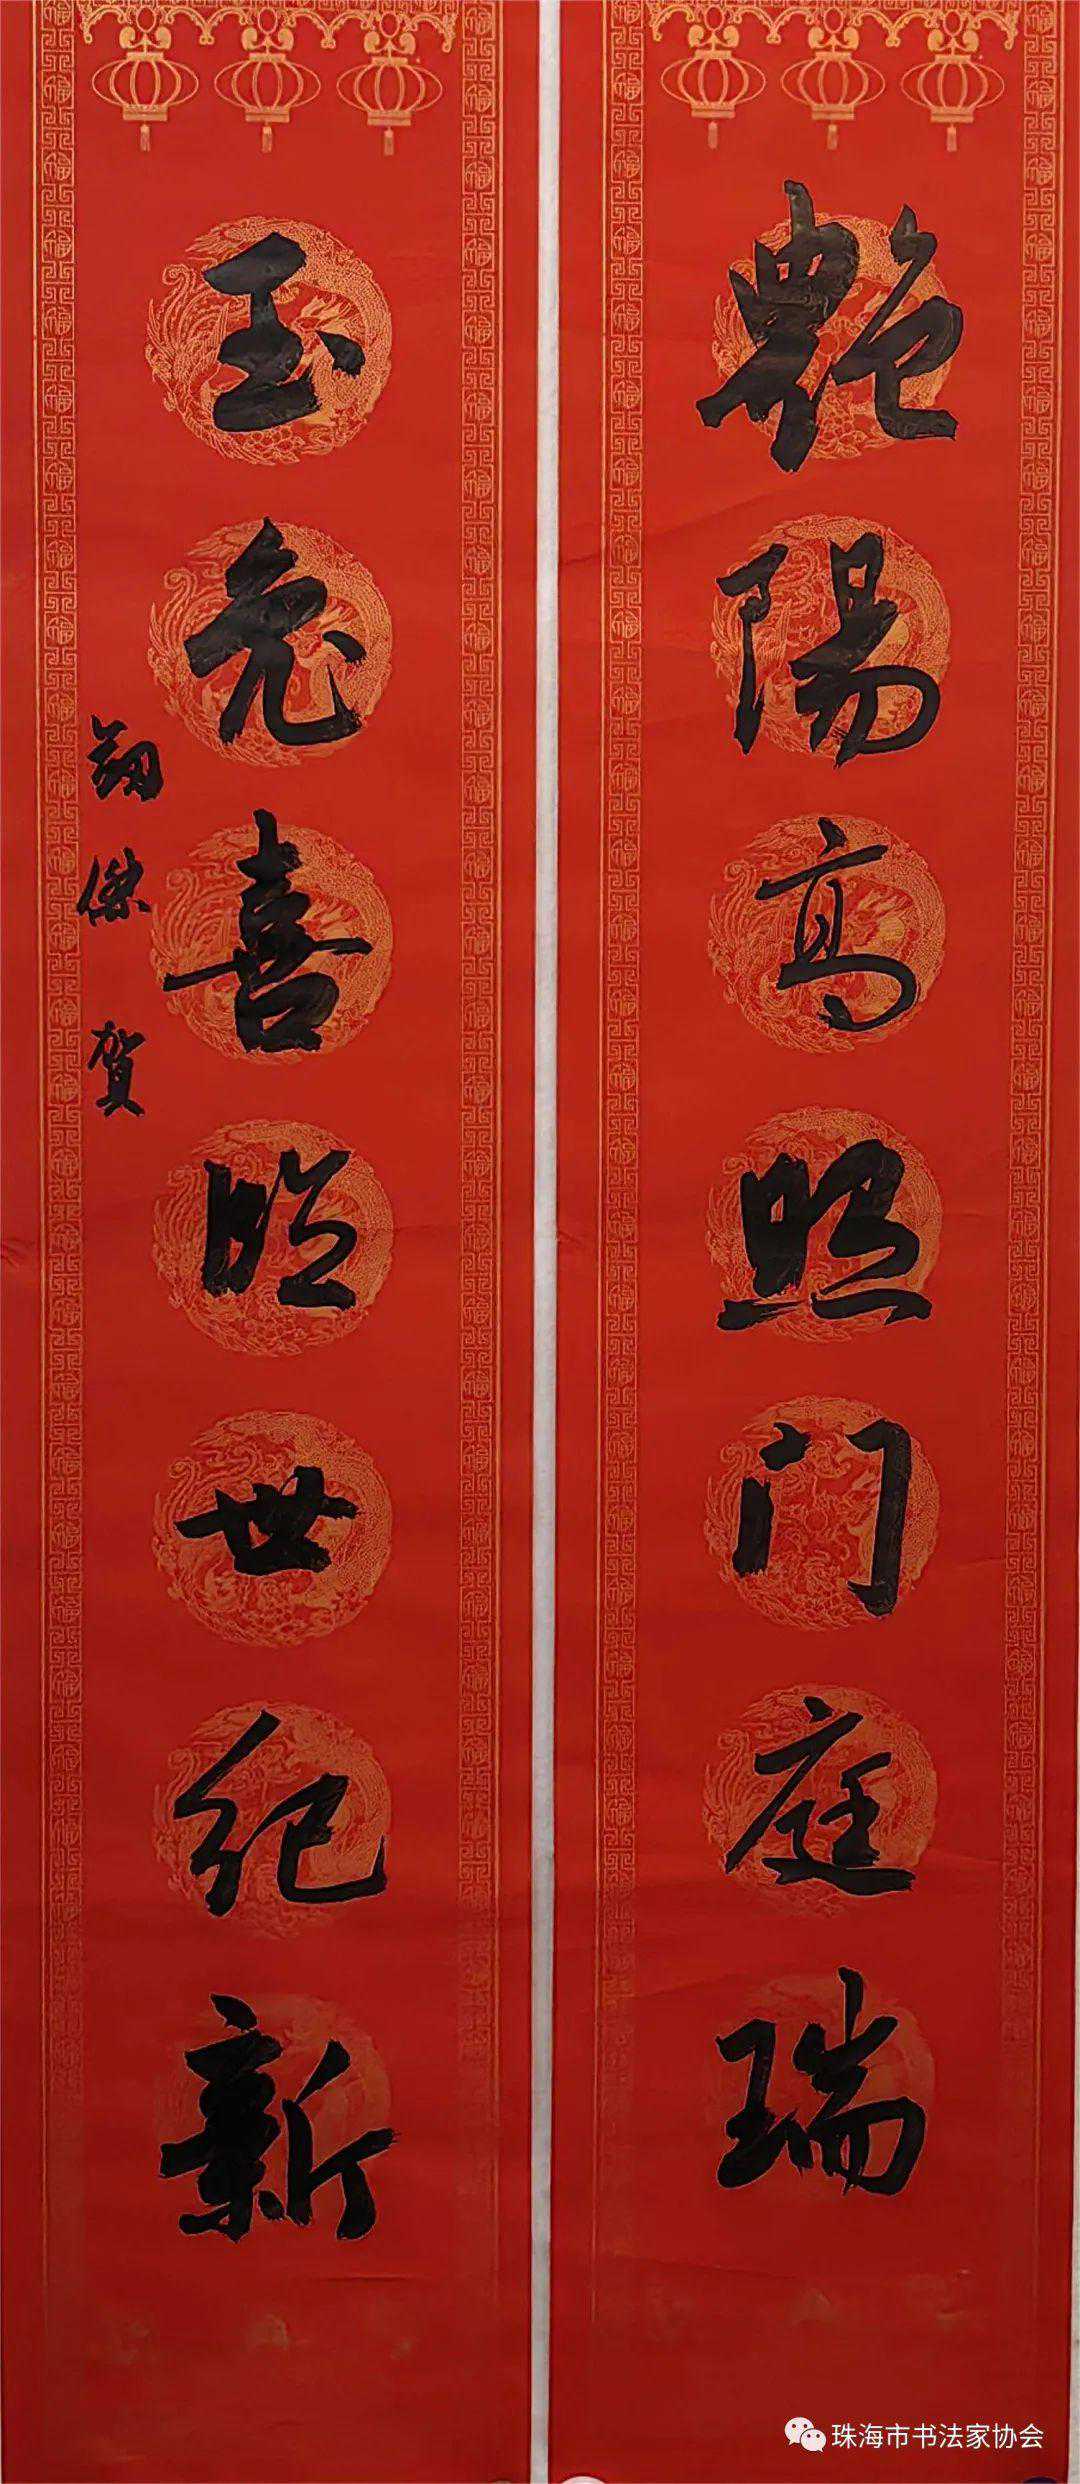 艷陽高照门庭瑞
玉兔喜临世纪新
傑賀
珠海市书法家协会